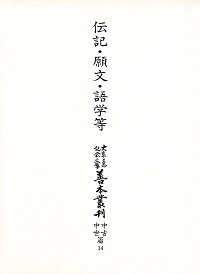 伝記・願文・語学等
大東急記念文庫善本叢刊
中古中世篇
14